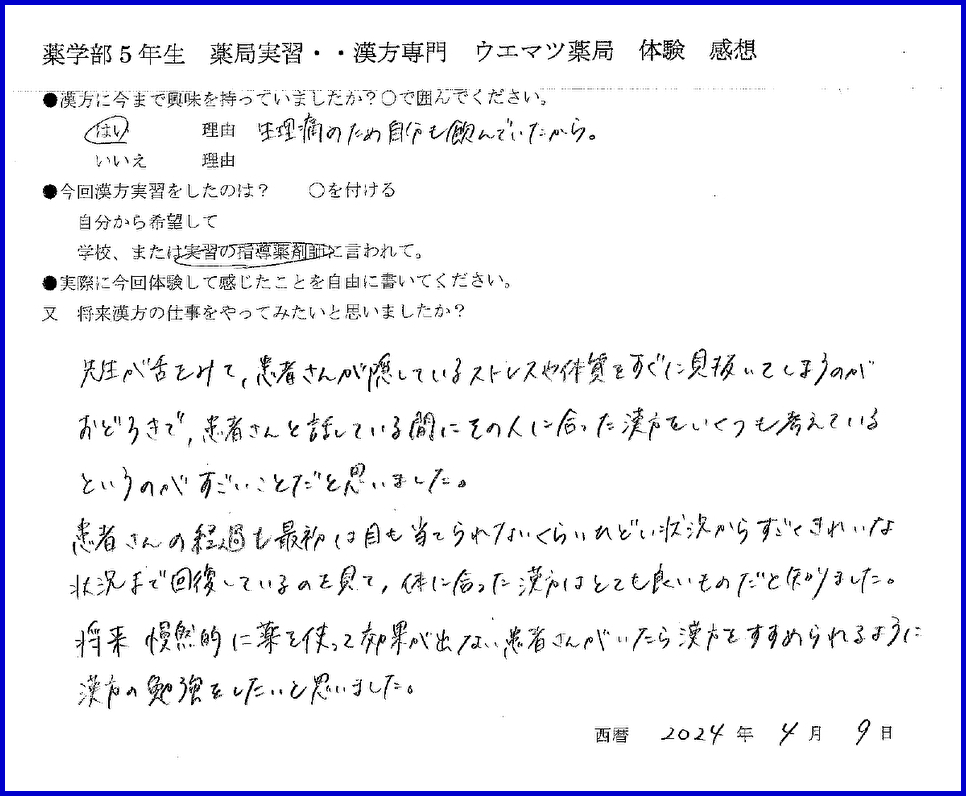 薬学部5年生　薬局実習・・漢方専門　ウエマツ薬局　体験　感想
●漢方に今まで興味を持っていましたか？○で囲んでください。
はい　理由　生理痛のため自分も飲んでいたから。
いいえ　理由
●今回漢方実習をしたのは？　○を付ける
自分から希望して
学校、または実習の指導薬剤師に言われて。
●実際に今回体験して感じたことを自由に書いてください。
又　将来漢方の仕事をやってみたいと思いましたか？
先生が舌をみて、患者さんが隠しているストレスや体質をすぐに見抜いてしまうのが
おどろきで、患者さんと話している間にその人に合った漢方をいくつも考えている
というのがすごいことだと思いました。
患者さんの経過も最初は目も当てられないくらいひどい状況からすごくきれいな
状況まで回復しているのを見て、体に合った漢方はとても良いものだと知りました。
将来　慢然的に薬を使って効果が出ない患者さんがいたら漢方をすすめられるように
漢方の勉強をしたいと思いました。
西暦　2024年　4月　9日